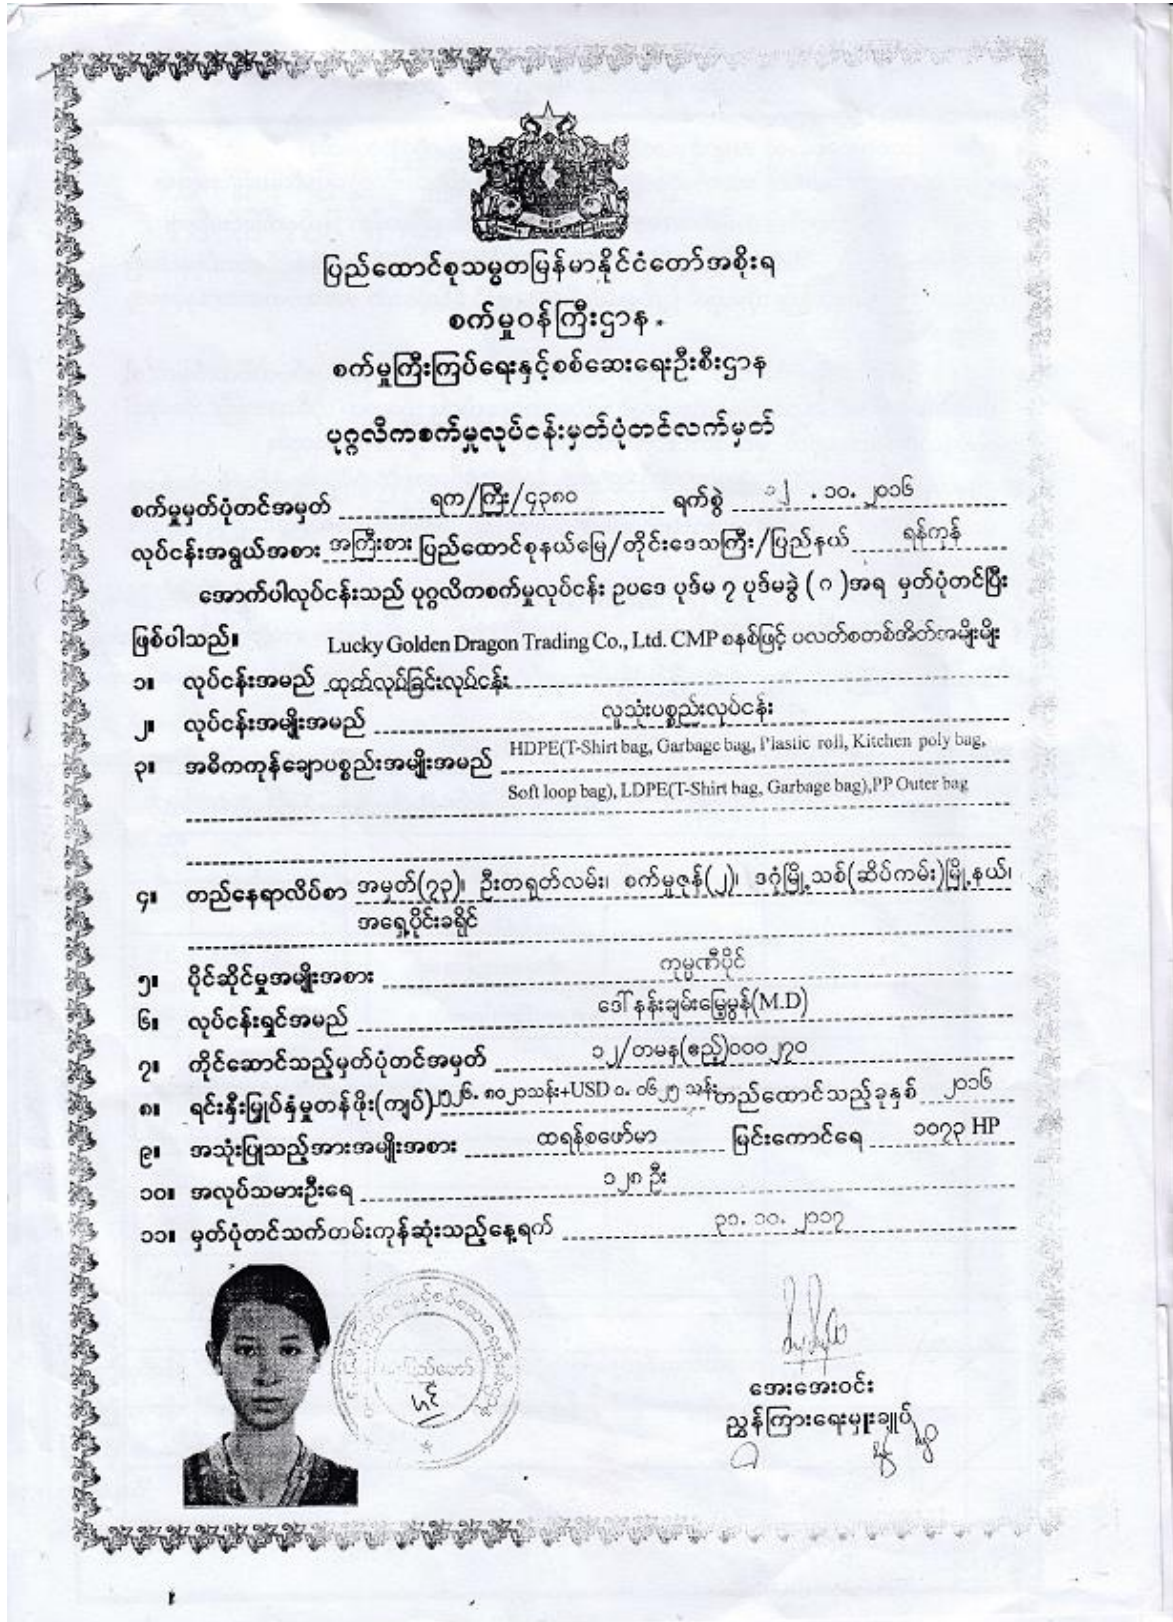 ပြည်ထောင်စုသမ္မတမြန်မာနိုင်ငံတော်အစိုးရ
စက်မှုဝန်ကြီးဌာန
စက်မှုကြီးကြပ်ရေးနှင့်စစ်ဆေးရေးဦးစီးဌာန
ပုဂ္ဂလိကစက်မှုလုပ်ငန်းမှတ်ပုံတင်လက်မှတ်
စက်မှုမှတ်ပုံတင်အမှတ် ရက/ကြီး/၄၃၈၀ ရက်စွဲ ၁၂.၁၀.၂၀၁၆
လုပ်ငန်းအရွယ်အစား အကြီးစား ပြည်ထောင်စုနယ်မြေ/တိုင်းဒေသကြီး/ပြည်နယ် ရန်ကုန်
အောက်ပါလုပ်ငန်းသည် ပုဂ္ဂလိကစက်မှုလုပ်ငန်း ဥပဒေ ပုဒ်မ ၇ ပုဒ်မခွဲ ( ဂ )အရ မှတ်ပုံတင်ပြီး
ဖြစ်ပါသည်။ Lucky Golden Dragon Trading Co., Ltd. CMP စနစ်ဖြင့် ပလတ်စတစ်အိတ်အမျိုးမျိုး
၁။ လုပ်ငန်းအမည် ထုတ်လုပ်ခြင်းလုပ်ငန်း
၂။ လုပ်ငန်းအမျိုးအမည် လူသုံးပစ္စည်းလုပ်ငန်း
၃။ အဓိကကုန်ချောပစ္စည်းအမျိုးအမည် HDPE(T-Shirt bag, Garbage bag, Plastic roll, Kitchen poly bag,
Soft loop bag), LDPE(T-Shirt bag, Garbage bag),PP Outer bag
၄။ တည်နေရာလိပ်စာ အမှတ်(၇၃)၊ ဦးတရုတ်လမ်း၊ စက်မှုဇုန်(၂)၊ ဒဂုံမြို့သစ်(ဆိပ်ကမ်း)မြို့နယ်၊
အရှေ့ပိုင်းခရိုင်
၅။ ပိုင်ဆိုင်မှုအမျိုးအစား ကုမ္ပဏီပိုင်
၆။ လုပ်ငန်းရှင်အမည် ဒေါ်နန်းချမ်းမြေ့မွန်(M.D)
၇။ ကိုင်ဆောင်သည့်မှတ်ပုံတင်အမှတ် ၁၂/တမန(ဧည့်)၀၀၀၂၇၀
၈။ ရင်းနှီးမြှုပ်နှံမှုတန်ဖိုး(ကျပ်) ၂၅၂၆.၈၀၂၁သန်း+USD ၀.၀၆၂၅ သန်း တည်ထောင်သည့်ခုနှစ် ၂၀၁၆
၉။ အသုံးပြုသည့်အားအမျိုးအစား ထရန်စဖော်မာ မြင်းကောင်ရေ ၁၀၇၃ HP
၁၀။ အလုပ်သမားဦးရေ ၁၂၈ ဦး
၁၁။ မှတ်ပုံတင်သက်တမ်းကုန်ဆုံးသည့်နေ့ရက် ၃၁.၁၀.၂၀၁၇
အေးအေးဝင်း
ညွှန်ကြားရေးမှူးချုပ်